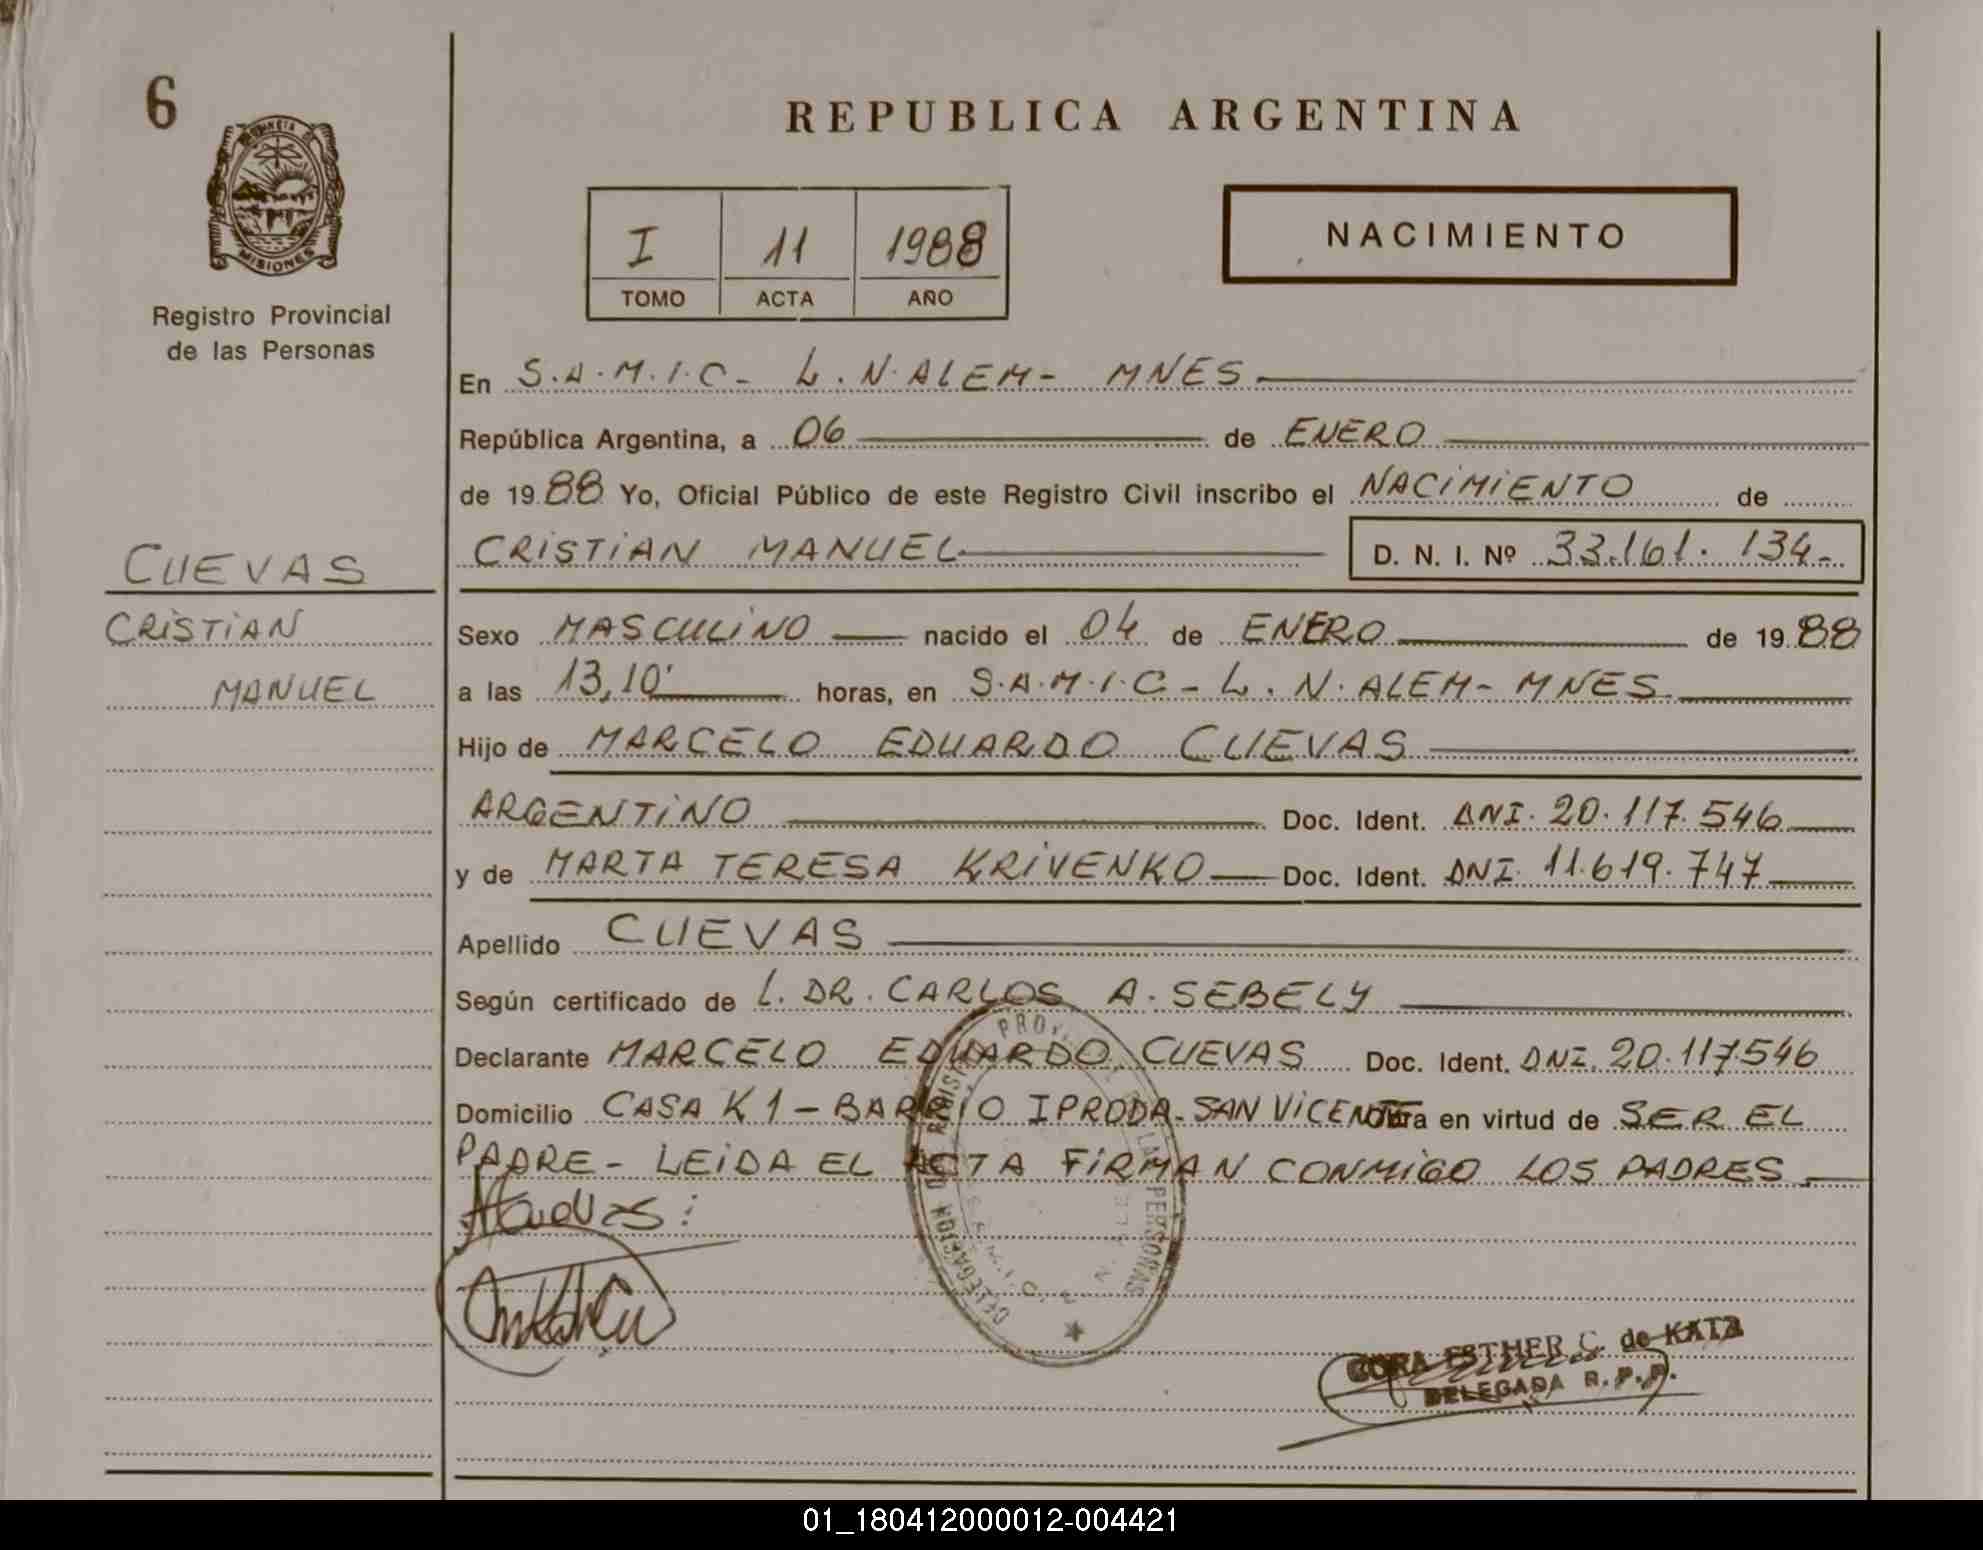 6
REPUBLICA ARGENTINA
MISIONES
Registro Provincial
de las Personas
I 11 1988
TOMO ACTA AÑO
NACIMIENTO
En S.A.M.I.C- L.N.ALEM- MNES
República Argentina, a 06 de ENERO
de 1988 Yo, Oficial Público de este Registro Civil inscribo el NACIMIENTO de
CRISTIAN MANUEL D. N. I. Nº 33.161.134-
CUEVAS
CRISTIAN
MANUEL
Sexo MASCULINO nacido el 04 de ENERO de 1988
a las 13,10' horas, en S.A.M.I.C- L.N.ALEM- MNES
Hijo de MARCELO EDUARDO CUEVAS
ARGENTINO Doc. Ident. DNI. 20.117.546
y de MARTA TERESA KRIVENKO Doc. Ident. DNI. 11.619.747
Apellido CUEVAS
Según certificado de L. DR. CARLOS A. SEBELY
Declarante MARCELO EDUARDO CUEVAS Doc. Ident. DNI. 20.117.546
Domicilio CASA K1 - BARRIO IPRODA- SAN VICENTE Obra en virtud de SER EL
PADRE - LEIDA EL ACTA FIRMAN CONMIGO LOS PADRES.
DELEGACION REGIST PROV LAS PERSONAS
CORA ESTHER C. de KATZ
DELEGADA R.P.P.
01_180412000012-004421